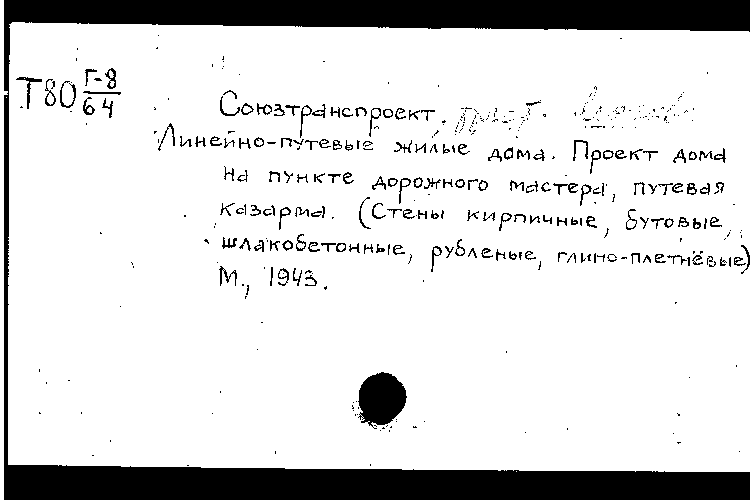 Т80 Г-8/64
Союзтранспроект.
Линейно-путевые жилые дома. Проект дома
на пункте дорожного мастера, путевая
казарма. (Стены кирпичные, бутовые,
шлакобетонные, рубленые, глино-плетнёвые)
М., 1943.